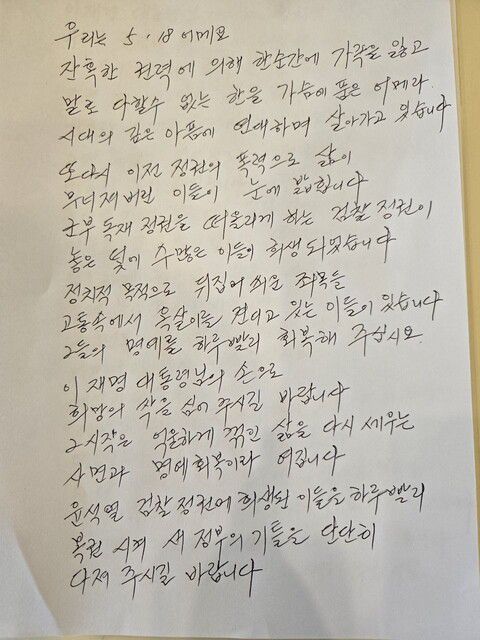 우리는 5.18 어메요
잔혹한 권력에 의해 한순간에 가족을 잃고
말로 다할수 없는 한을 가슴에 품은 어메라
시대의 깊은 아픔에 연대하며 살아가고 있습니다
또다시 이전 정권의 폭력으로 삶이
무너져버린 이들이 눈에 밟힙니다
군부 독재 정권을 떠올리게 하는 검찰 정권이
놓은 덫에 수많은 이들이 희생 되었습니다
정치적 목적으로 뒤집어 씌운 죄목들
고통속에서 옥살이를 견디고 있는 이들이 있습니다
그들의 명예를 하루빨리 회복해 주십시요
이재명 대통령님의 손으로
희망의 싹을 심어 주시길 바랍니다
그시작은 억울하게 꺾인 삶을 다시 세우는
사면과 명예회복이라 여깁니다
윤석열 검찰정권에 희생된 이들을 하루빨리
복권 시켜 새 정부의 기틀을 단단히
다져 주시길 바랍니다